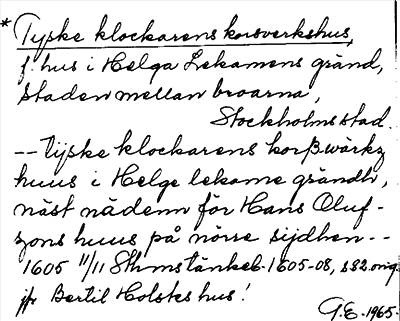 * Tyske klockarens korsverkshus,
f. hus i Helga Lekamens gränd,
staden mellan broarna,
Stockholms stad.
-- tÿske klockarens korßwärkz
huus i Helge lekame grändh,
näst nädenn för Hans Oluf-
zons huus på nörre sijdhen --
1605 11/11 Sthmstänkeb. 1605-08, s 82. orig.
jfr Bertil Holsts hus!
G.E. 1965.